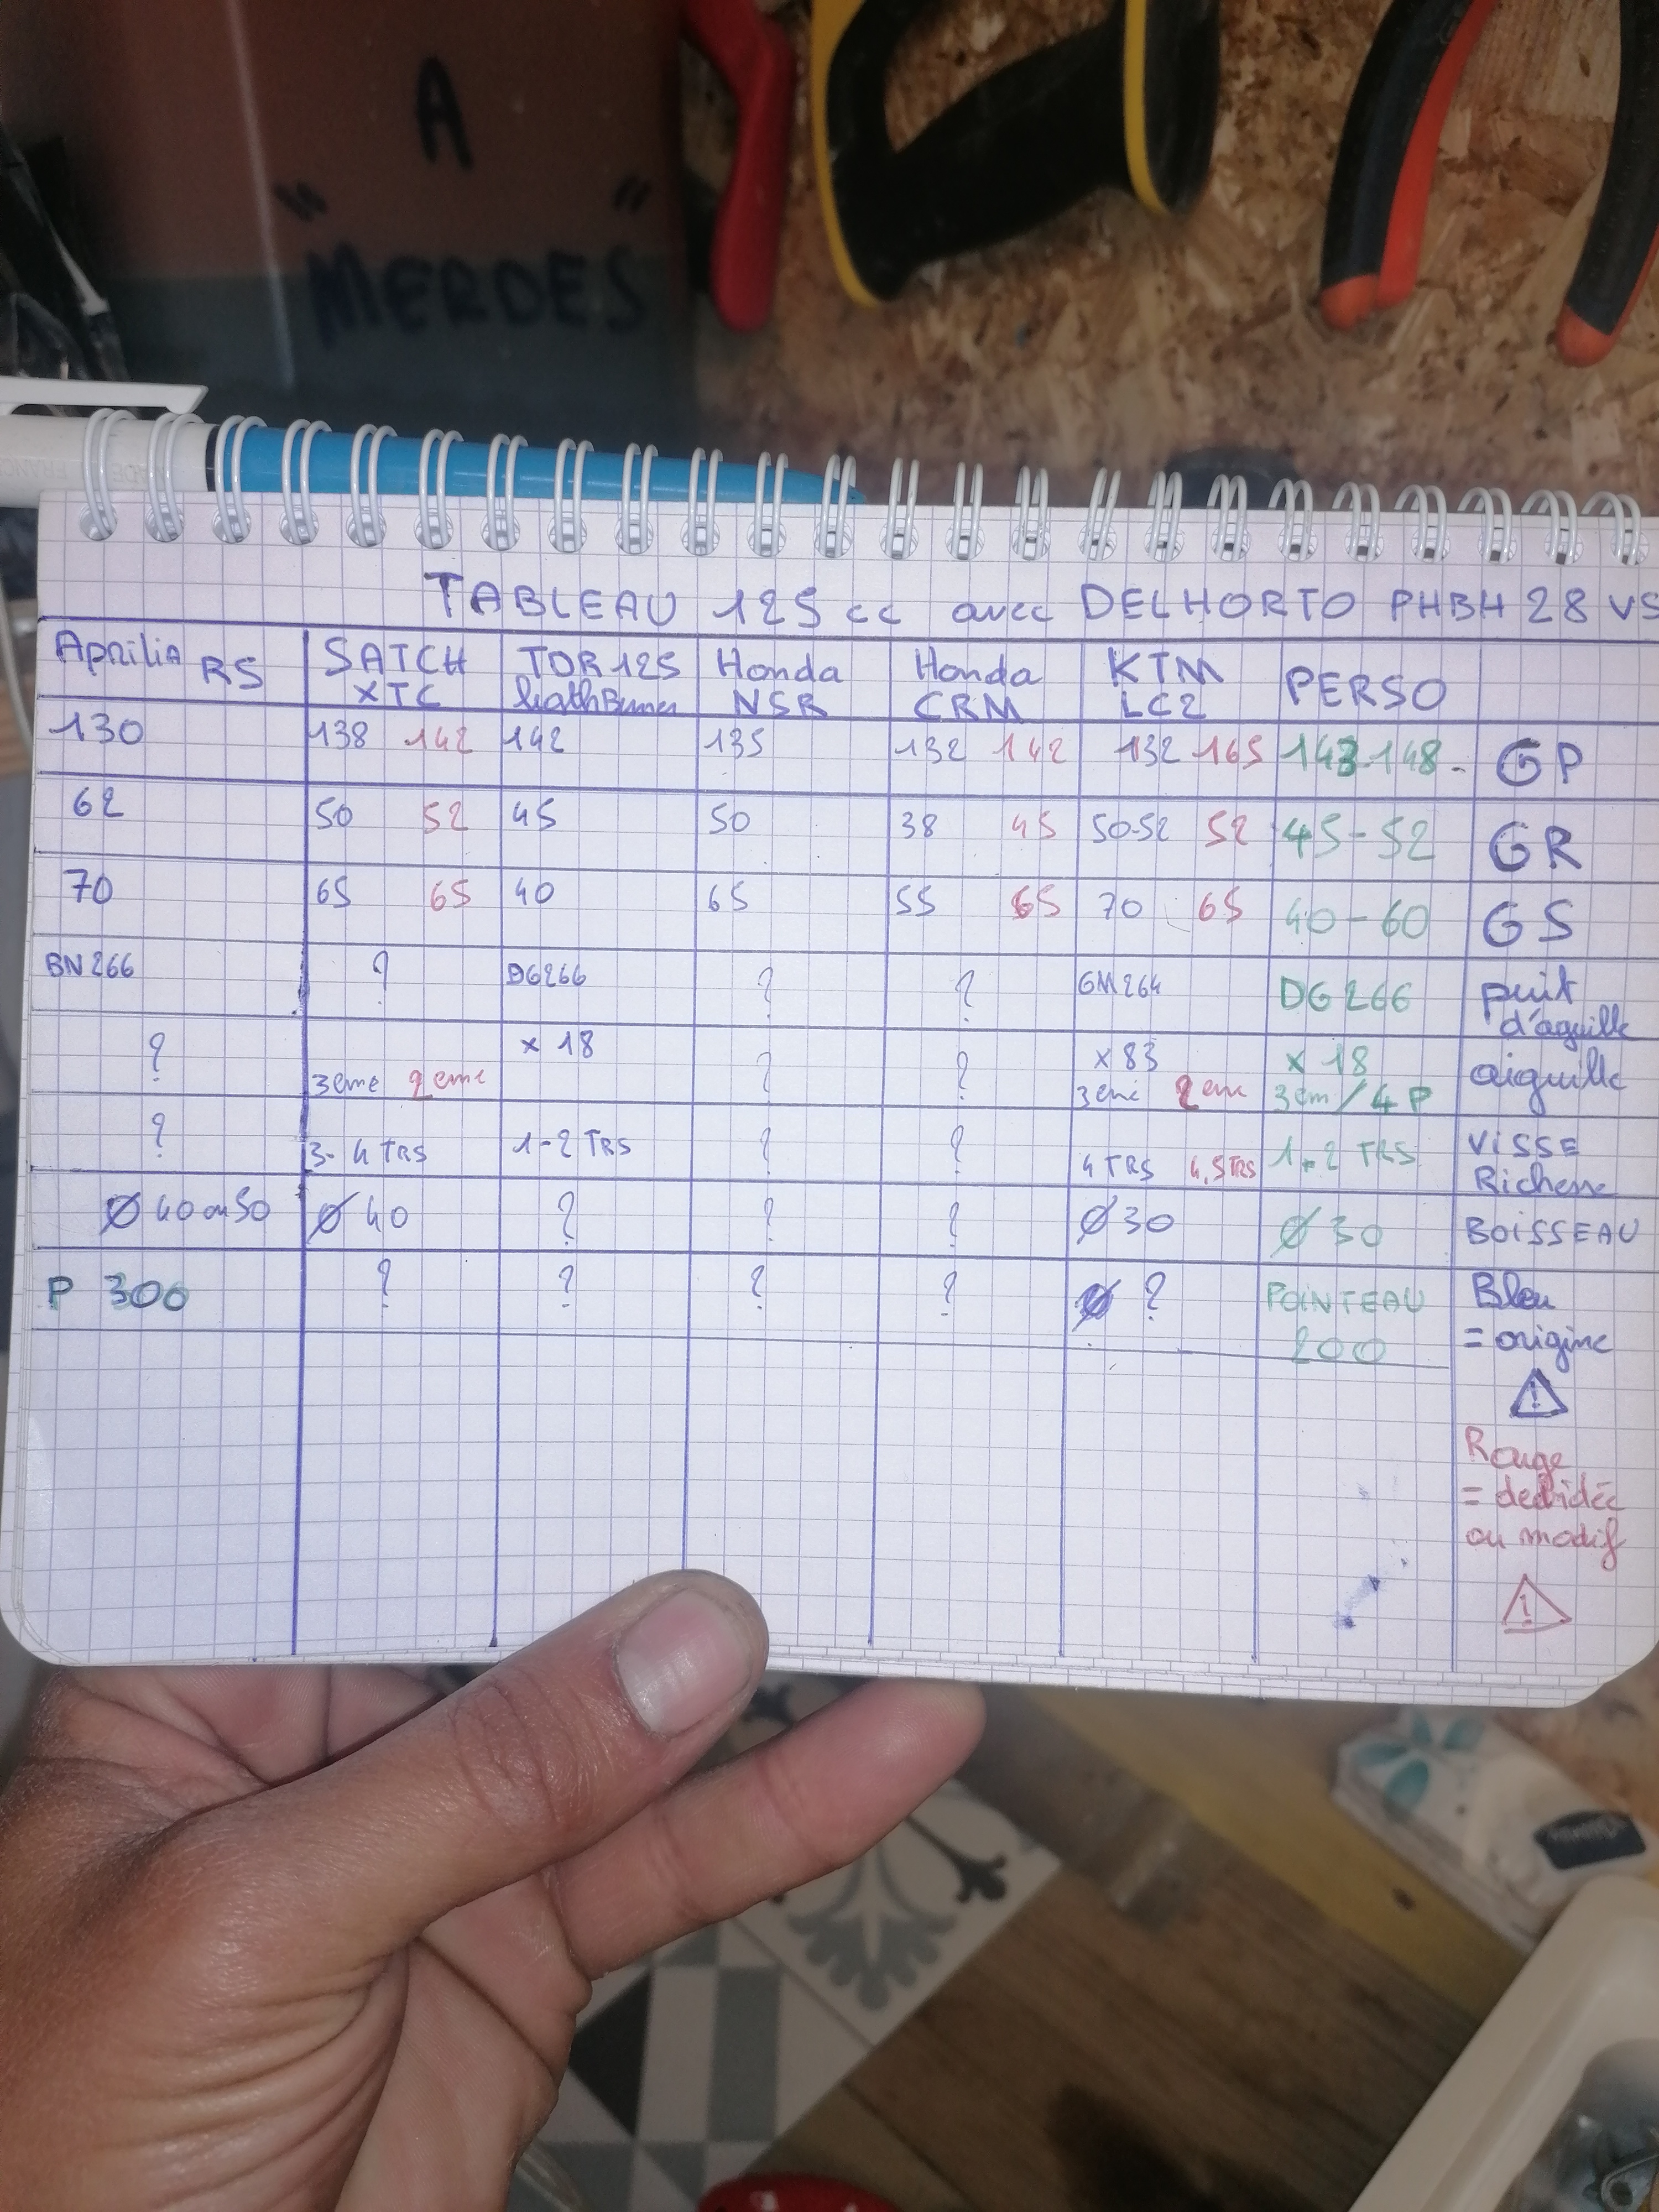 A
" MERDES "
TABLEAU 125 cc avec DELHORTO PHBH 28 VS
Aprilia RS SATCH XTC TDR 125 Honda NSR Honda CRM KTM LC2 PERSO
130 138 142 142 135 132 142 132 165 143-148- GP
62 50 52 45 50 38 45 50-52 52 45-52 GR
70 65 65 40 65 55 65 70 65 40-60 GS
BN266 ? DG266 ? ? GM264 DG 266 puit d'aguille
? 3eme 2eme x 18 ? ? x 83 3eme 2eme x 18 3em/4 P aiguille
? 3-4 TRS 1-2 TRS ? ? 4 TRS 4,5 TRS 1-2 TRS VISSE Richesse
Ø 40 ou 50 Ø 40 ? ? ? Ø 30 Ø 30 BOISSEAU
P 300 ? ? ? ? ? POINTEAU 200 Bleu = origine
!
Rouge
= debridée
ou modif
!